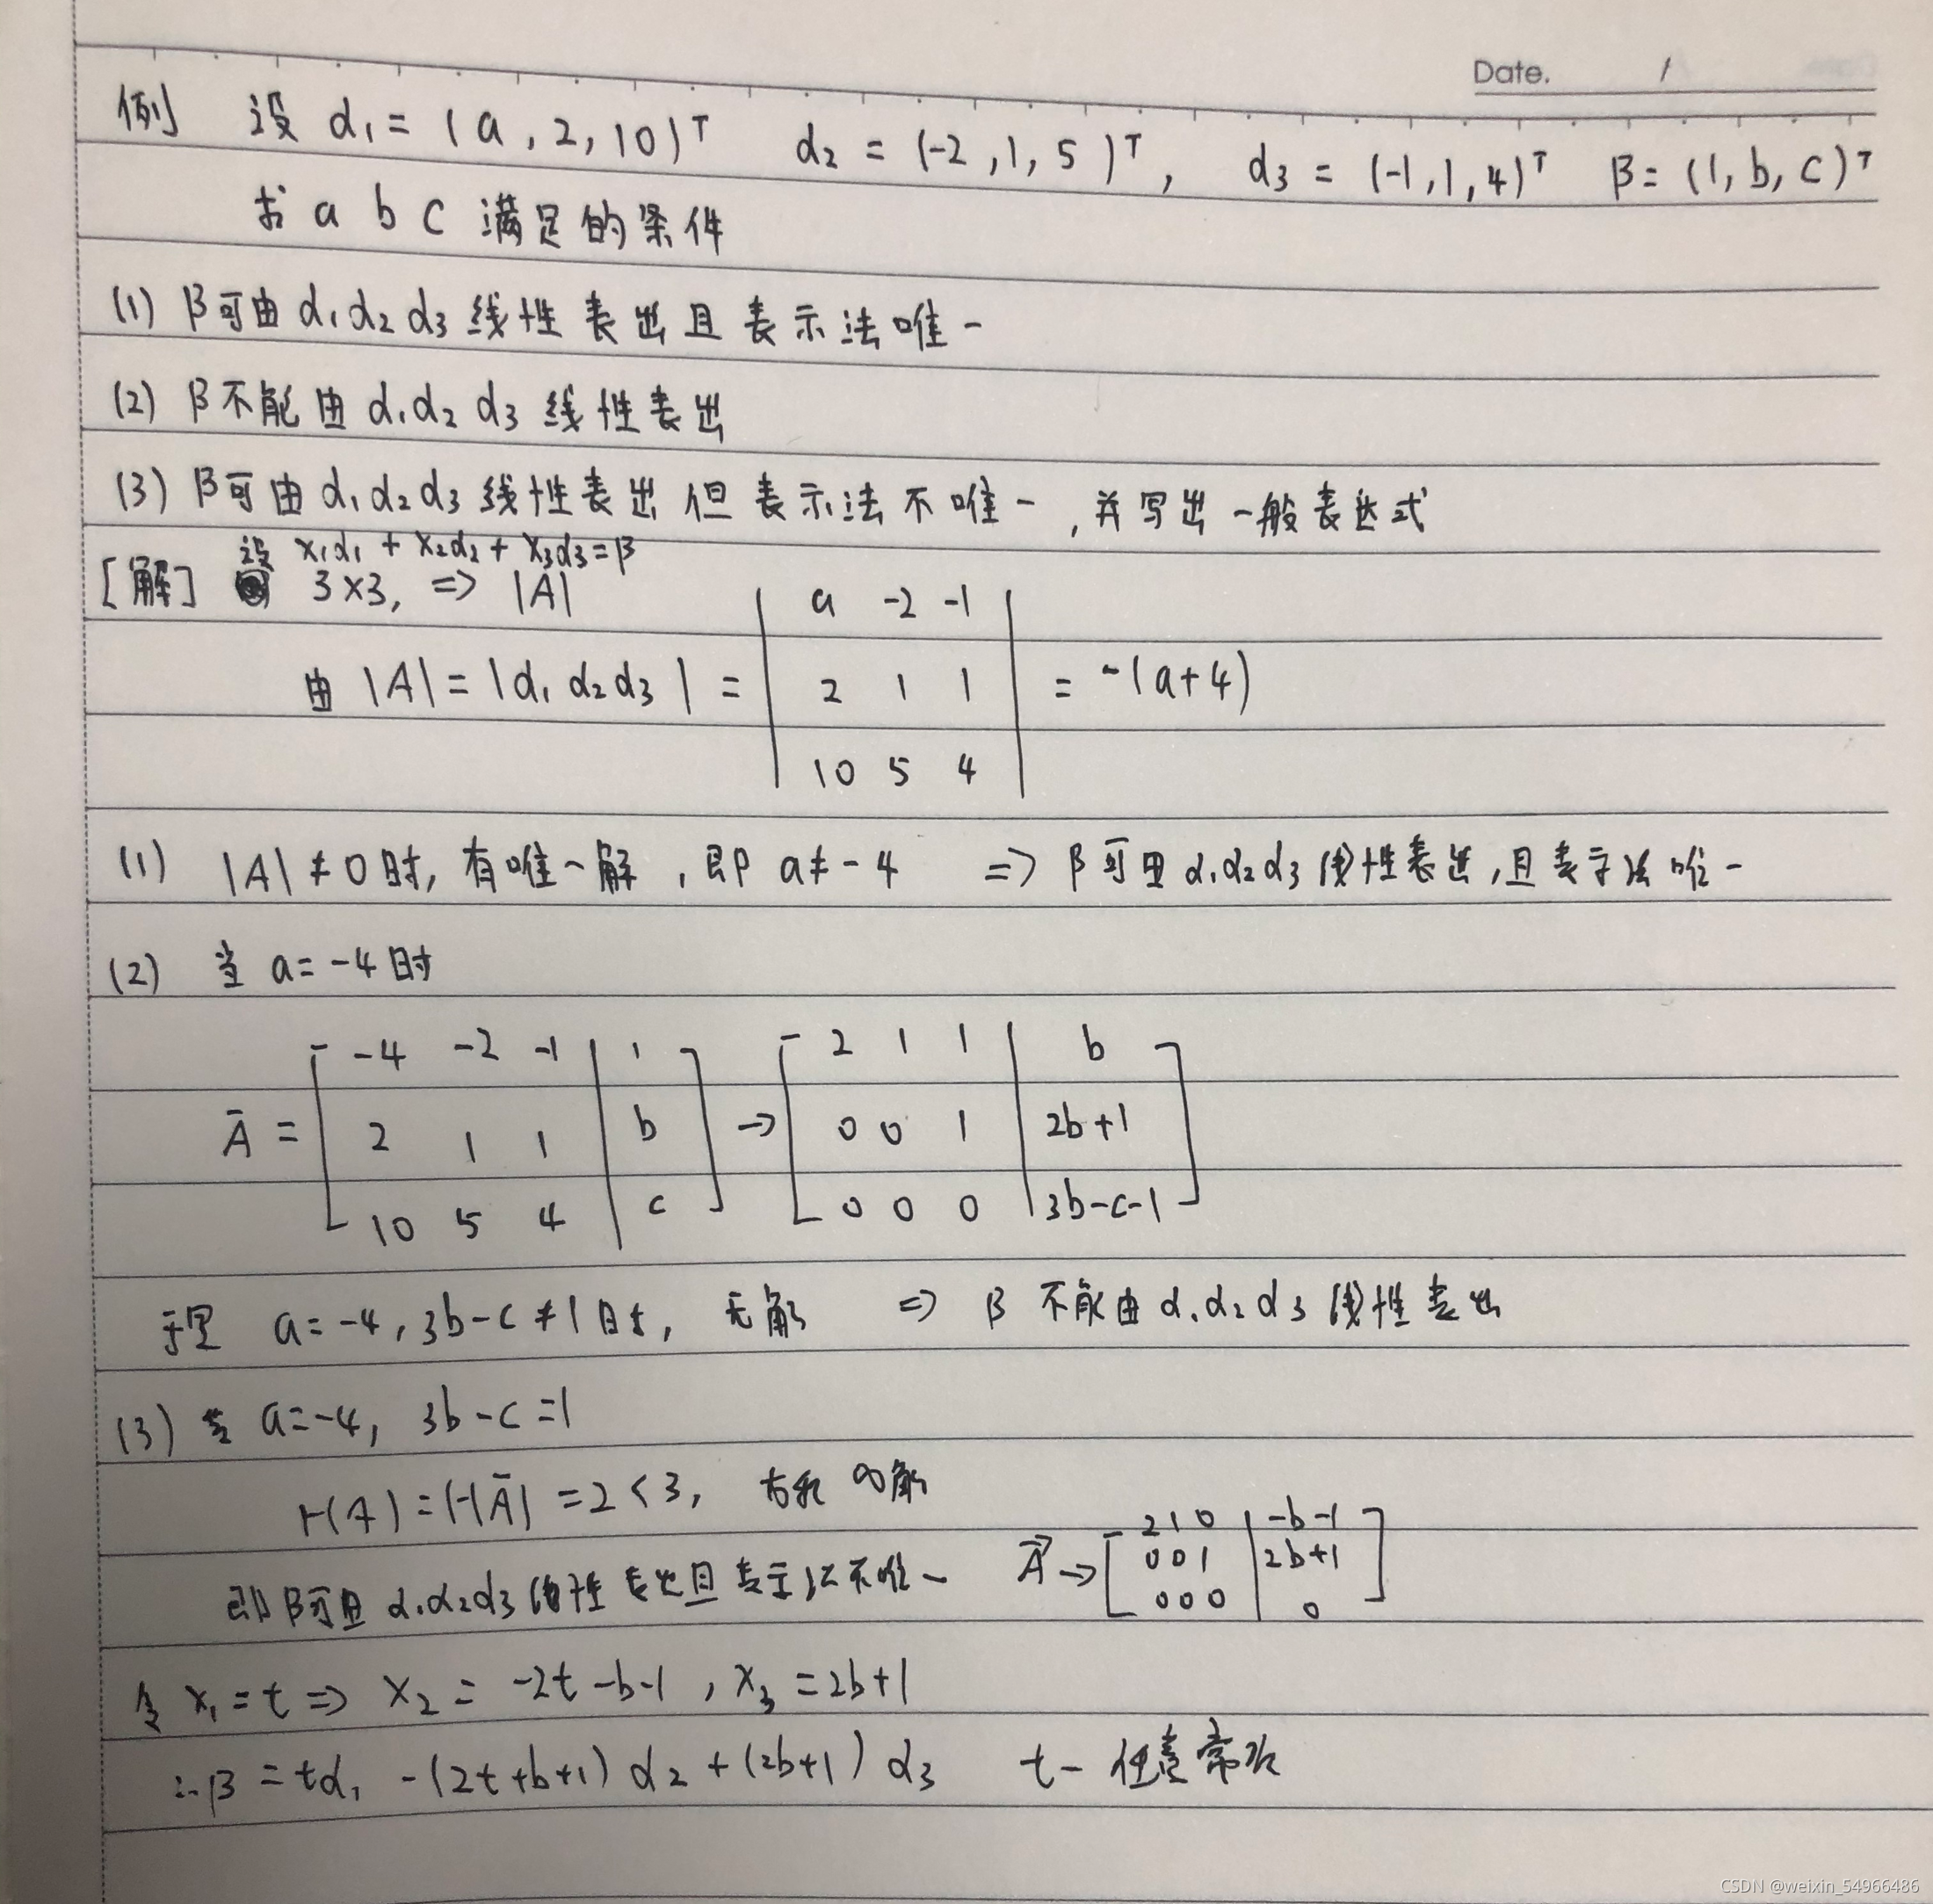 Date. /
例 设 α₁ = (a, 2, 10)ᵀ α₂ = (-2, 1, 5)ᵀ, α₃ = (-1, 1, 4)ᵀ β = (1, b, c)ᵀ
求 a b c 满足的条件
(1) β可由 α₁α₂α₃ 线性表出且表示法唯一
(2) β不能由 α₁α₂α₃ 线性表出
(3) β可由 α₁α₂α₃ 线性表出但表示法不唯一, 并写出一般表达式
设 x₁α₁ + x₂α₂ + x₃α₃ = β
[解] 3×3, => |A|
由 |A| = |α₁ α₂ α₃| = | a -2 -1 |
| 2 1 1 | = -(a+4)
| 10 5 4 |
(1) |A| ≠ 0时, 有唯一解, 即 a ≠ -4 => β可由 α₁α₂α₃ 线性表出, 且表示法唯一
(2) 当 a = -4时
[ -4 -2 -1 | 1 ] [ 2 1 1 | b ]
Ā = [ 2 1 1 | b ] → [ 0 0 1 | 2b+1 ]
[ 10 5 4 | c ] [ 0 0 0 | 3b-c-1 ]
于是 a = -4, 3b-c ≠ 1时, 无解 => β 不能由 α₁α₂α₃ 线性表出
(3) 当 a = -4, 3b-c = 1
r(A) = r(Ā) = 2 < 3, ∞解
即 β可由 α₁α₂α₃ 线性表出且表示法不唯一 Ā → [ 2 1 0 | -b-1 ]
[ 0 0 1 | 2b+1 ]
[ 0 0 0 | 0 ]
令 x₁ = t => x₂ = -2t-b-1, x₃ = 2b+1
∴ β = tα₁ -(2t+b+1) α₂ + (2b+1) α₃ t- 任意常数
CSDN @weixin_54966486